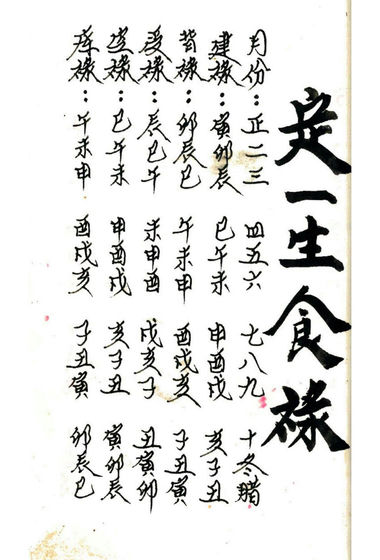 定一生食禄
月份：正二三 四五六 七八九 十冬腊
建禄：寅卯辰 巳午未 申酉戌 亥子丑
皆禄：卯辰巳 午未申 酉戌亥 子丑寅
禄：辰巳午 未申酉 戌亥子 丑寅卯
禄：巳午未 申酉戌 亥子丑 寅卯辰
禄：午未申 酉戌亥 子丑寅 卯辰巳